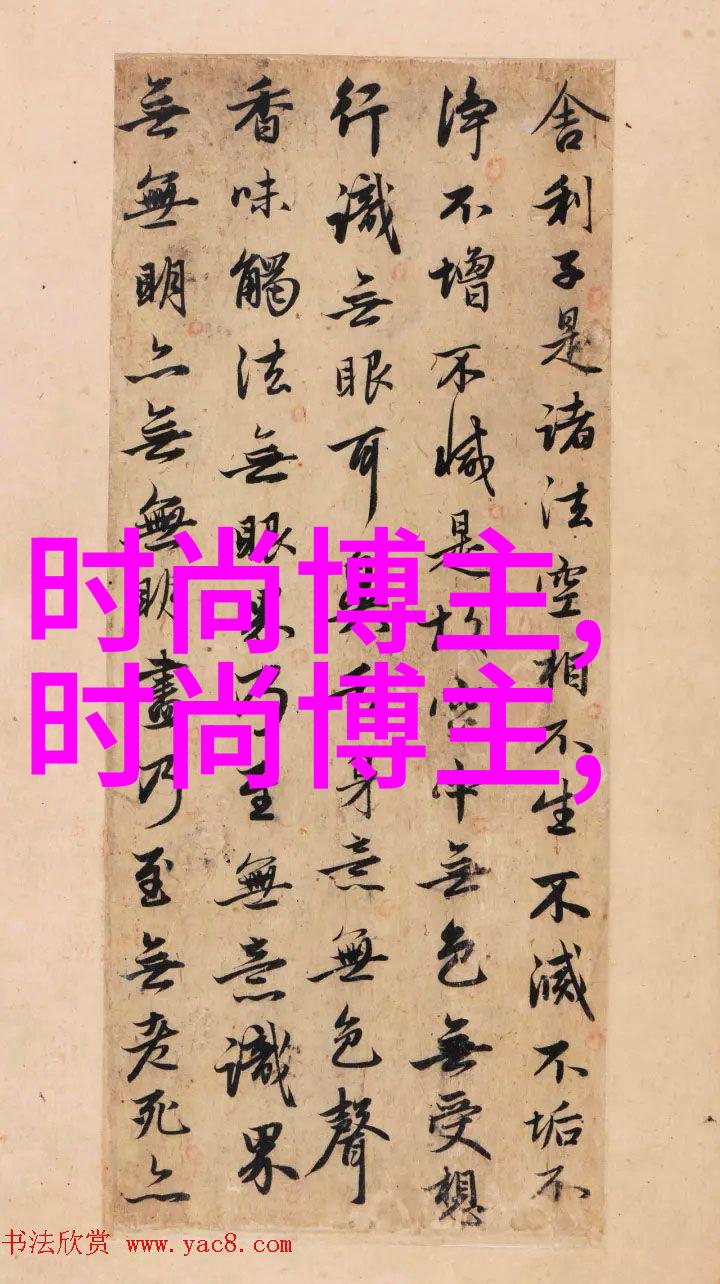 舍利子是诸法空相不生不滅不垢不
淨不增不減是故空中無色無受想
行識無眼耳鼻舌身意無色聲
香味觸法無眼界乃至無意識界
無無明亦無無明盡乃至無老死亦
时尚博主,
时尚博主,
书法欣赏 www.yac8.com